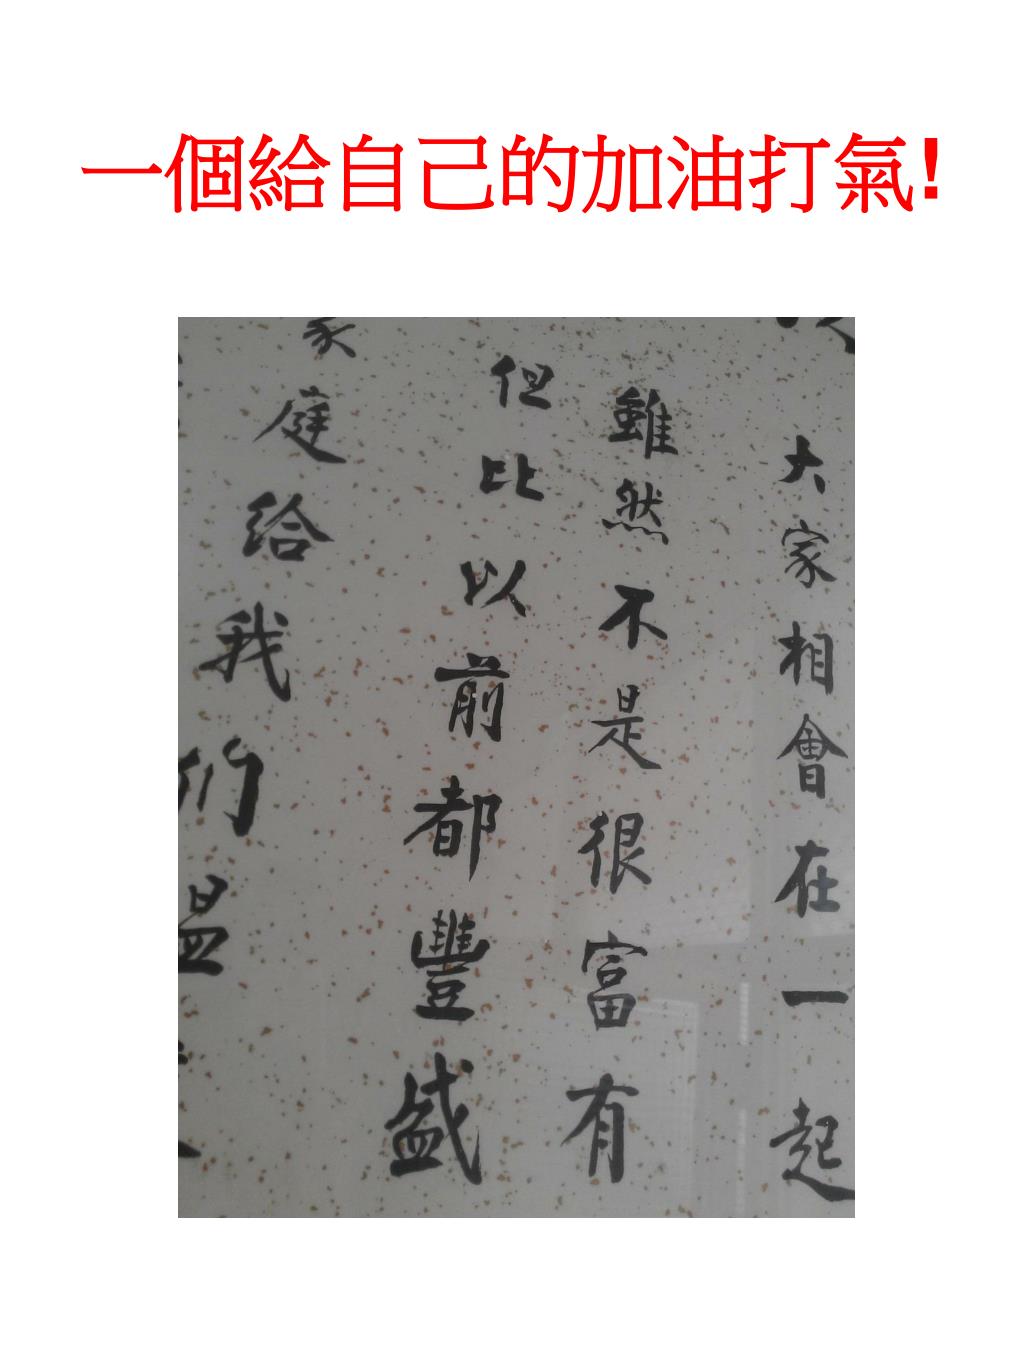 一個給自己的加油打氣!
大家相會在一起
雖然不是很富有
但比以前都豐盛
家庭給我們溫